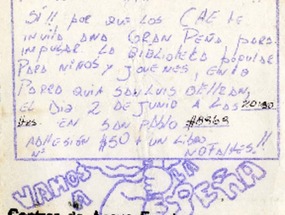 SÍ!! POR QUE LOS CAE TE
INVITA UNA GRAN PEÑA PARA
IMPULSAR LA BIBLIOTECA POPULAR
PARA NIÑOS Y JOVENES, EN LA
PARROQUIA SAN LUIS BELTRAN,
EL DIA 2 DE JUNIO A LAS 20:30
HRS EN SAN PABLO #8868
ADHESION $50 + UN LIBRO
Nº NO FALTES!!
VAMOS A LA PEÑA